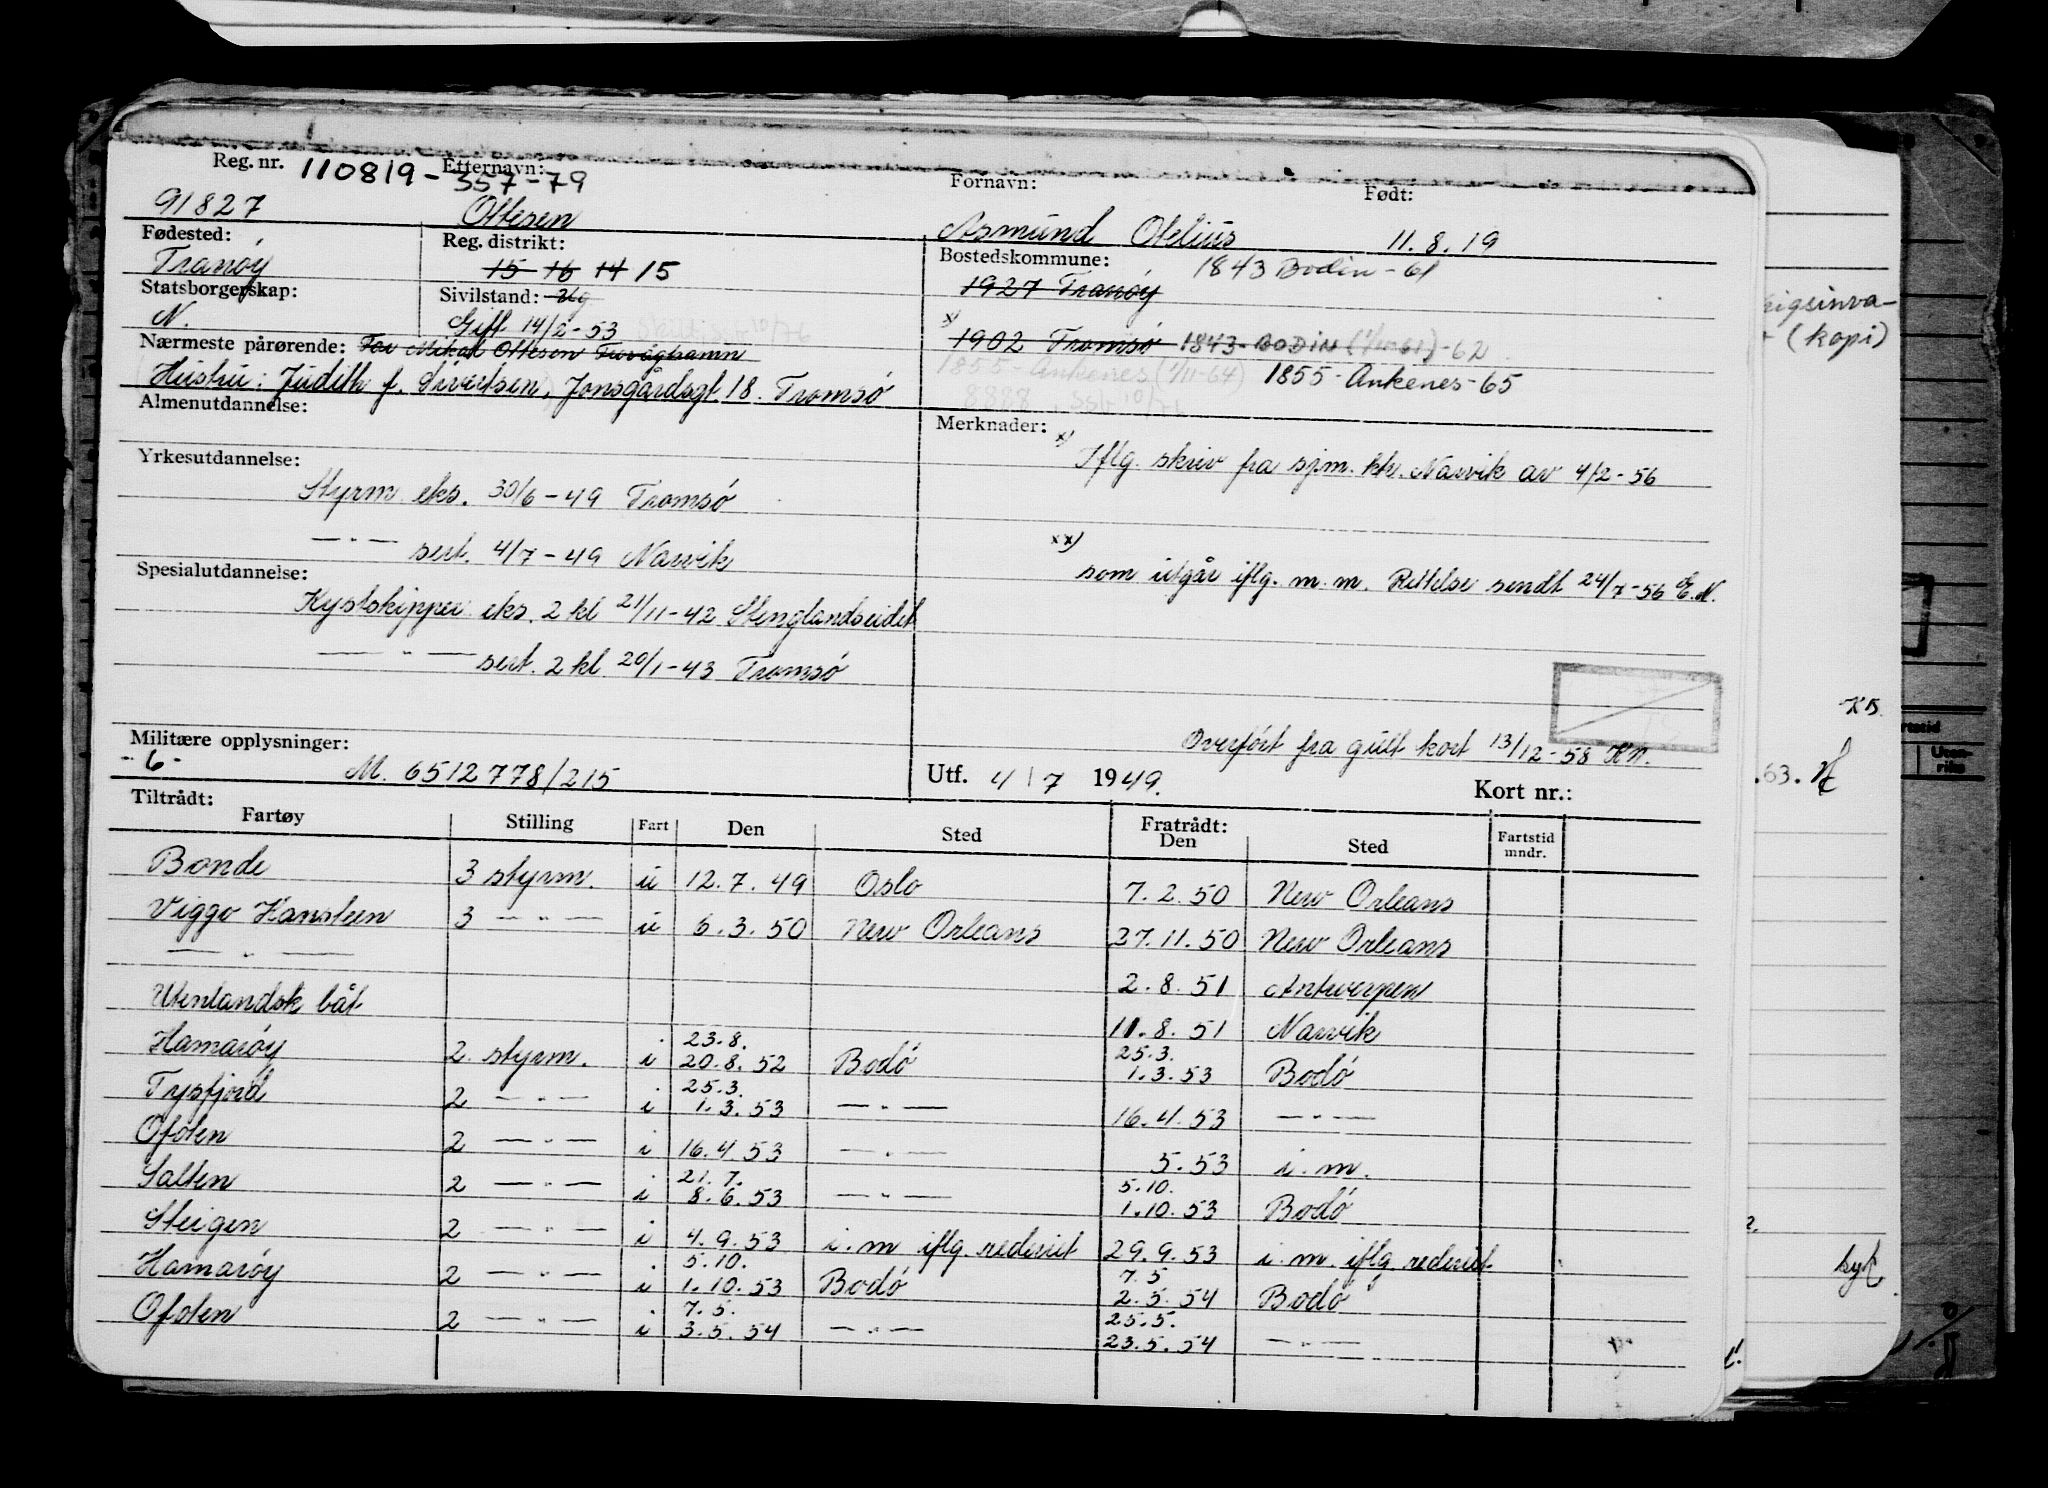 Reg. nr. 110819-357-79 Etternavn: Fornavn: Født:
91827 Ottesen Asmund Otelius 11.8.19
Fødested: Reg. distrikt: Bostedskommune: 1843 Bodin-61
Tranøy 15 16 14 15 1927 Tranøy
Statsborgerskap: Sivilstand: Ug
N. Gift 14/2-53 x) 1902 Tromsø 1843-BODIN (1/11-61)-62
Nærmeste pårørende: Far Mikal Ottesen Trovåghamn
Hustru: Judith f. Sivertsen, Jonsgårdsgt. 18. Tromsø 1855-Ankenes (1/11-64) 1855-Ankenes-65
8888
Almenutdannelse: Merknader:
x) Iflg. skriv fra sjm. ktr. Narvik av 4/2-56
Yrkesutdannelse:
Styrm eks. 30/6-49 Tromsø
— " — sert. 4/7-49 Narvik
xx) som utgår iflg. m.m. Rettelse sendt 24/7-56 E.N.
Spesialutdannelse:
Kystskipper eks. 2 kl 21/11-42 Stenglandseidet
— " — sert. 2 kl. 20/1-43 Tromsø
Overført fra gult kort 13/12-58 KN.
Militære opplysninger:
-6- M. 6512778/215 Utf. 4/7 1949. Kort nr.:
Tiltrådt: Fratrådt:
Fartøy Stilling Fart Den Sted Den Sted Fartstid mndr.
Bonde 3 styrm. u 12.7.49 Oslo 7.2.50 New Orleans
Viggo Hansteen 3 — " — u 6.3.50 New Orleans 27.11.50 New Orleans
— " — 2.8.51 Antwerpen
Utenlandsk båt 11.8.51 Narvik
23.8. 25.3.
Hamarøy 2. styrm. i 20.8.52 Bodø 1.3.53 Bodø
25.3.
Tysfjord 2 — " — i 1.3.53 — " — 16.4.53 — " —
Ofoten 2 — " — i 16.4.53 — " — 5.53 i.m.
21.7. 5.10.
Salten 2 — " — i 8.6.53 — " — 1.10.53 Bodø
Steigen 2 — " — i 4.9.53 i.m iflg. rederiet 29.9.53 i.m. iflg. rederiet
5.10. 7.5
Hamarøy 2 — " — i 1.10.53 Bodø 2.5.54 Bodø
7.5. 25.5.
Ofoten 2 — " — i 3.5.54 — " — 23.5.54 — " —
rigsinva-
(kopi)
KB.
.63.